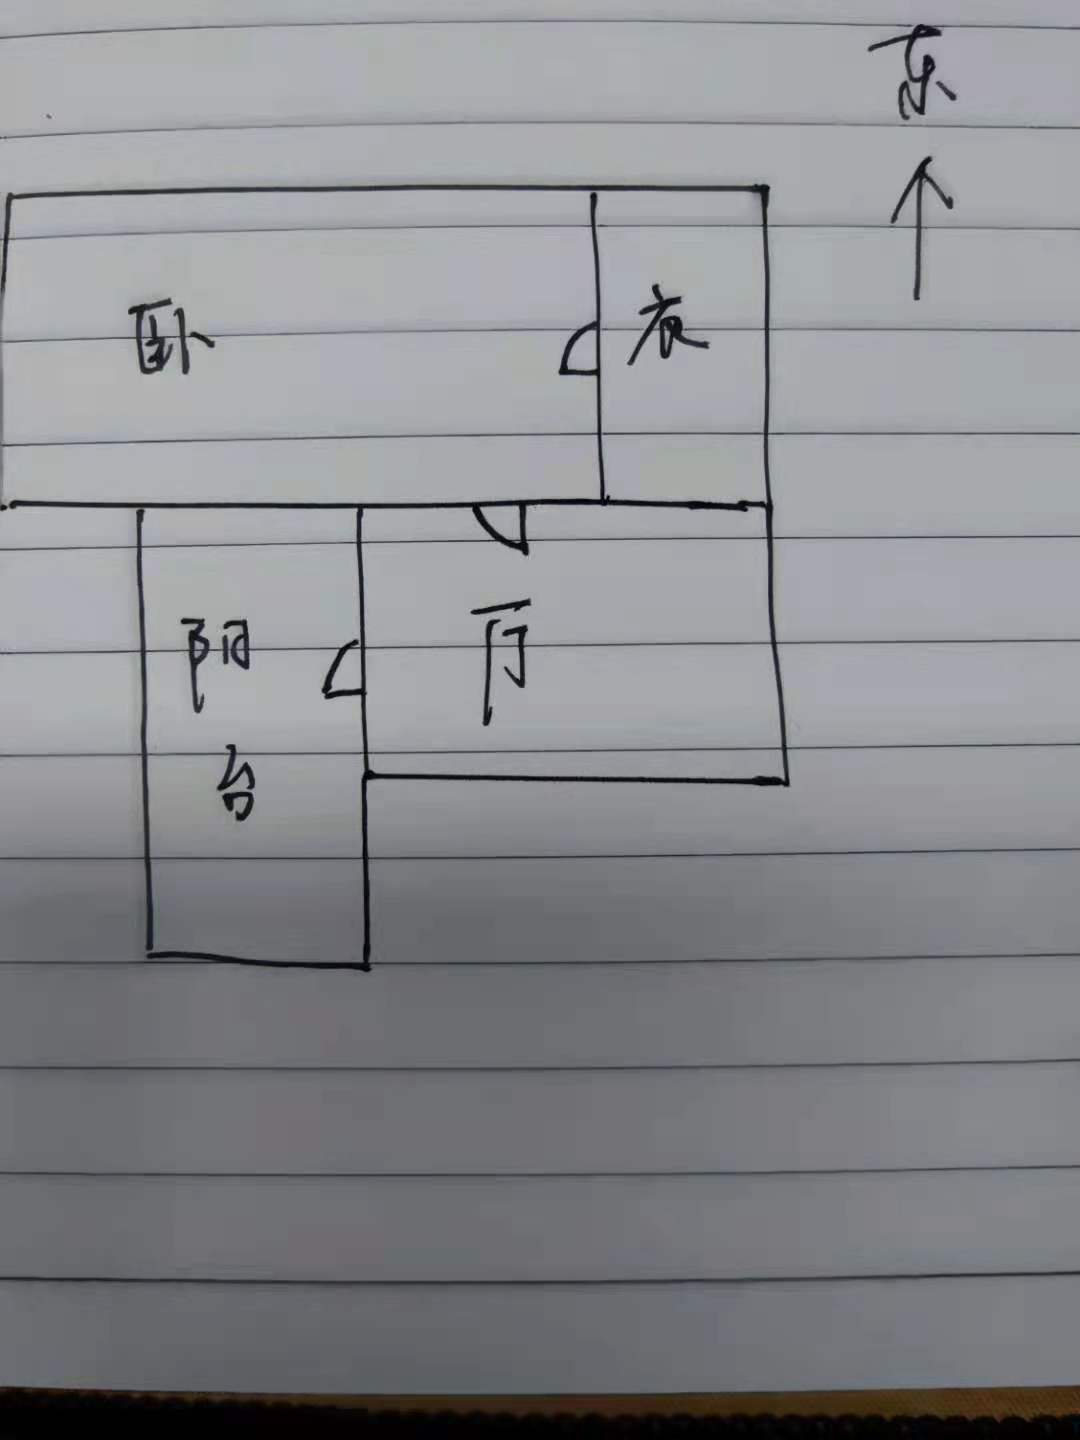 东
卧
衣
厅
阳
台